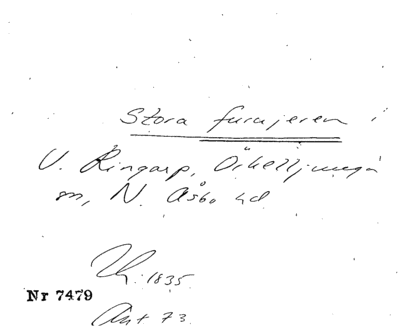 Stora furujeren i
V. Ringarp, Örkelljunga
sn, N. Åsbo hd
1835.
Nr 7479
Ant 73.